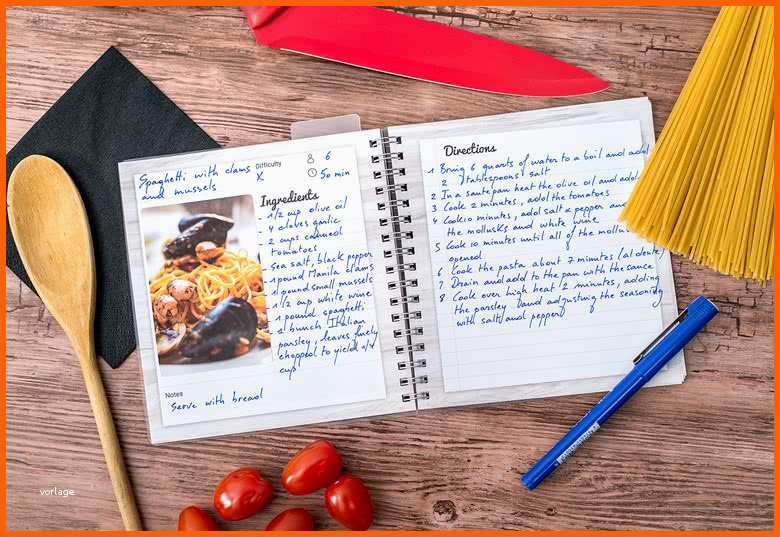 Spaghetti with clams
and mussels
Difficulty
X
6
50 min
Ingredients
- 1/2 cup olive oil
- 4 cloves garlic
- 2 cups canned
tomatoes
- sea salt, black pepper
- 1 pound Manila clams
- 1 pound small mussels
- 1/2 cup white wine
- 1 pound spaghetti
- bunch Italian
parsley, leaves finely
chopped to yield
cup
Notes
Serve with bread
Directions
1 Bring 6 quarts of water to a boil and add
2 tablespoons salt
2 In a saute pan heat the olive oil and add
3 Cook 2 minutes, add the tomatoes
4 Cook 10 minutes, add salt & pepper and
the mollusks and white wine
5 Cook 10 minutes until all of the
opened
6 Cook the pasta about 7 minutes (al dente)
7 Drain and add to the pan with the sauce
8 Cook over high heat 2 minutes, adding
the parsley and adjusting the seasoning
with salt and pepper
vorlage